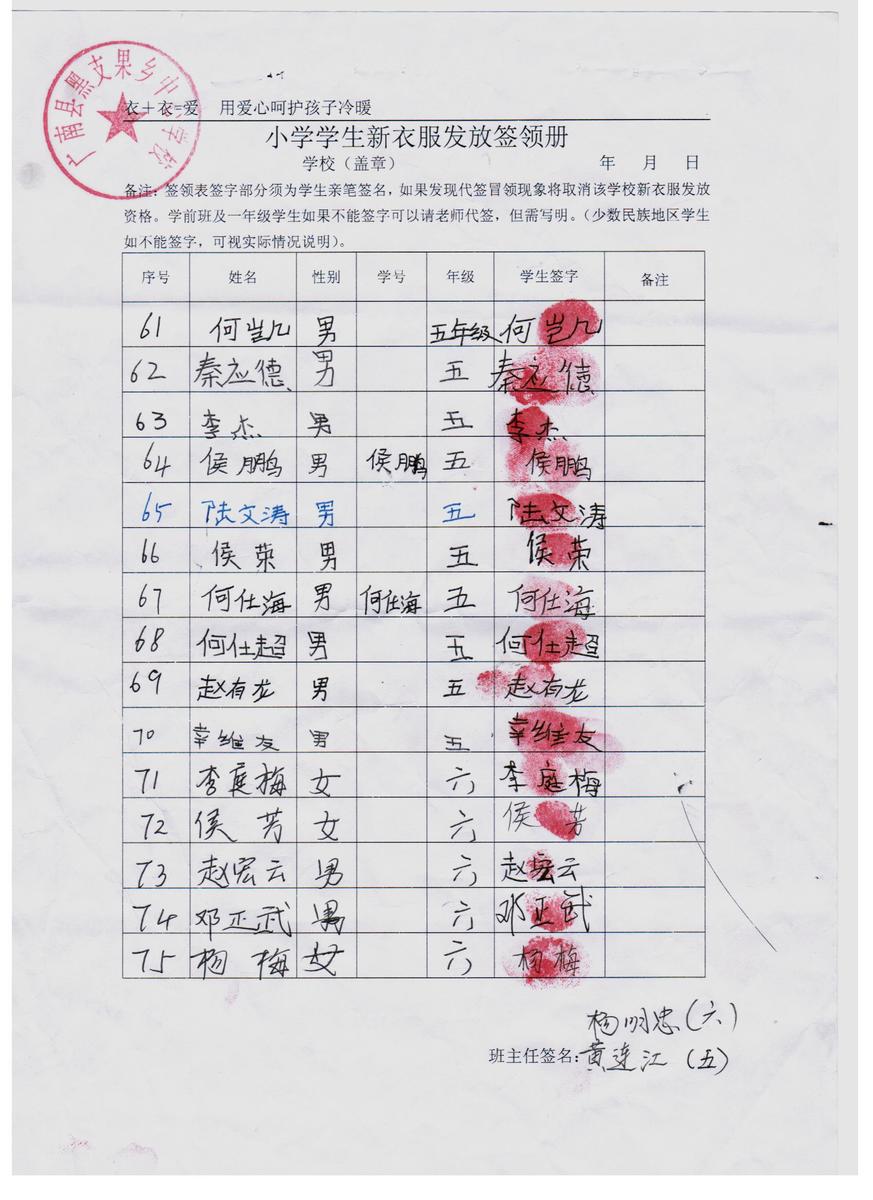 广南县黑支果乡中心学校
衣+衣=爱 用爱心呵护孩子冷暖
小学学生新衣服发放签领册
学校（盖章） 年 月 日
备注：签领表签字部分须为学生亲笔签名，如果发现代签冒领现象将取消该学校新衣服发放
资格。学前班及一年级学生如果不能签字可以请老师代签，但需写明。（少数民族地区学生
如不能签字，可视实际情况说明）。
序号 姓名 性别 学号 年级 学生签字 备注
61 何岂几 男 五年级 何岂几
62 秦应德 男 五 秦应德
63 李杰 男 五 李杰
64 侯鹏 男 侯鹏 五 侯鹏
65 陆文涛 男 五 陆文涛
66 侯荣 男 五 侯荣
67 何仕海 男 何仕海 五 何仕海
68 何仕超 男 五 何仕超
69 赵有龙 男 五 赵有龙
70 维友 男 五 维友
71 李庭梅 女 六 李庭梅
72 侯芳 女 六 侯芳
73 赵宏云 男 六 赵宏云
74 邓正武 男 六 邓正武
75 杨梅 女 六 杨梅
杨明忠（六）
班主任签名：黄连江（五）